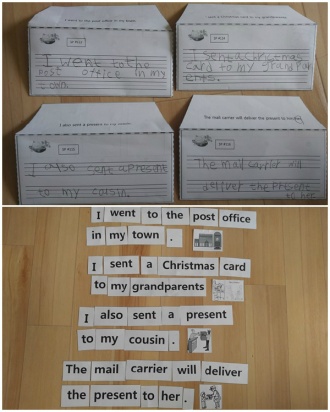 I went to the post office in my town.
I sent a Christmas card to my grandparents.
I went to the
post office in my
town
I sent a christmas
card to my grandpar
ents.
I also sent a present to my cousin.
The mail carrier will deliver the present to her.
I also sent a present
to my cousin.
The mail carrier will
deliver the present
to her.
I went to the post office
in my town .
I sent a Christmas card
to my grandparents
I also sent a present
to my cousin .
The mail carrier will deliver
the present to her .